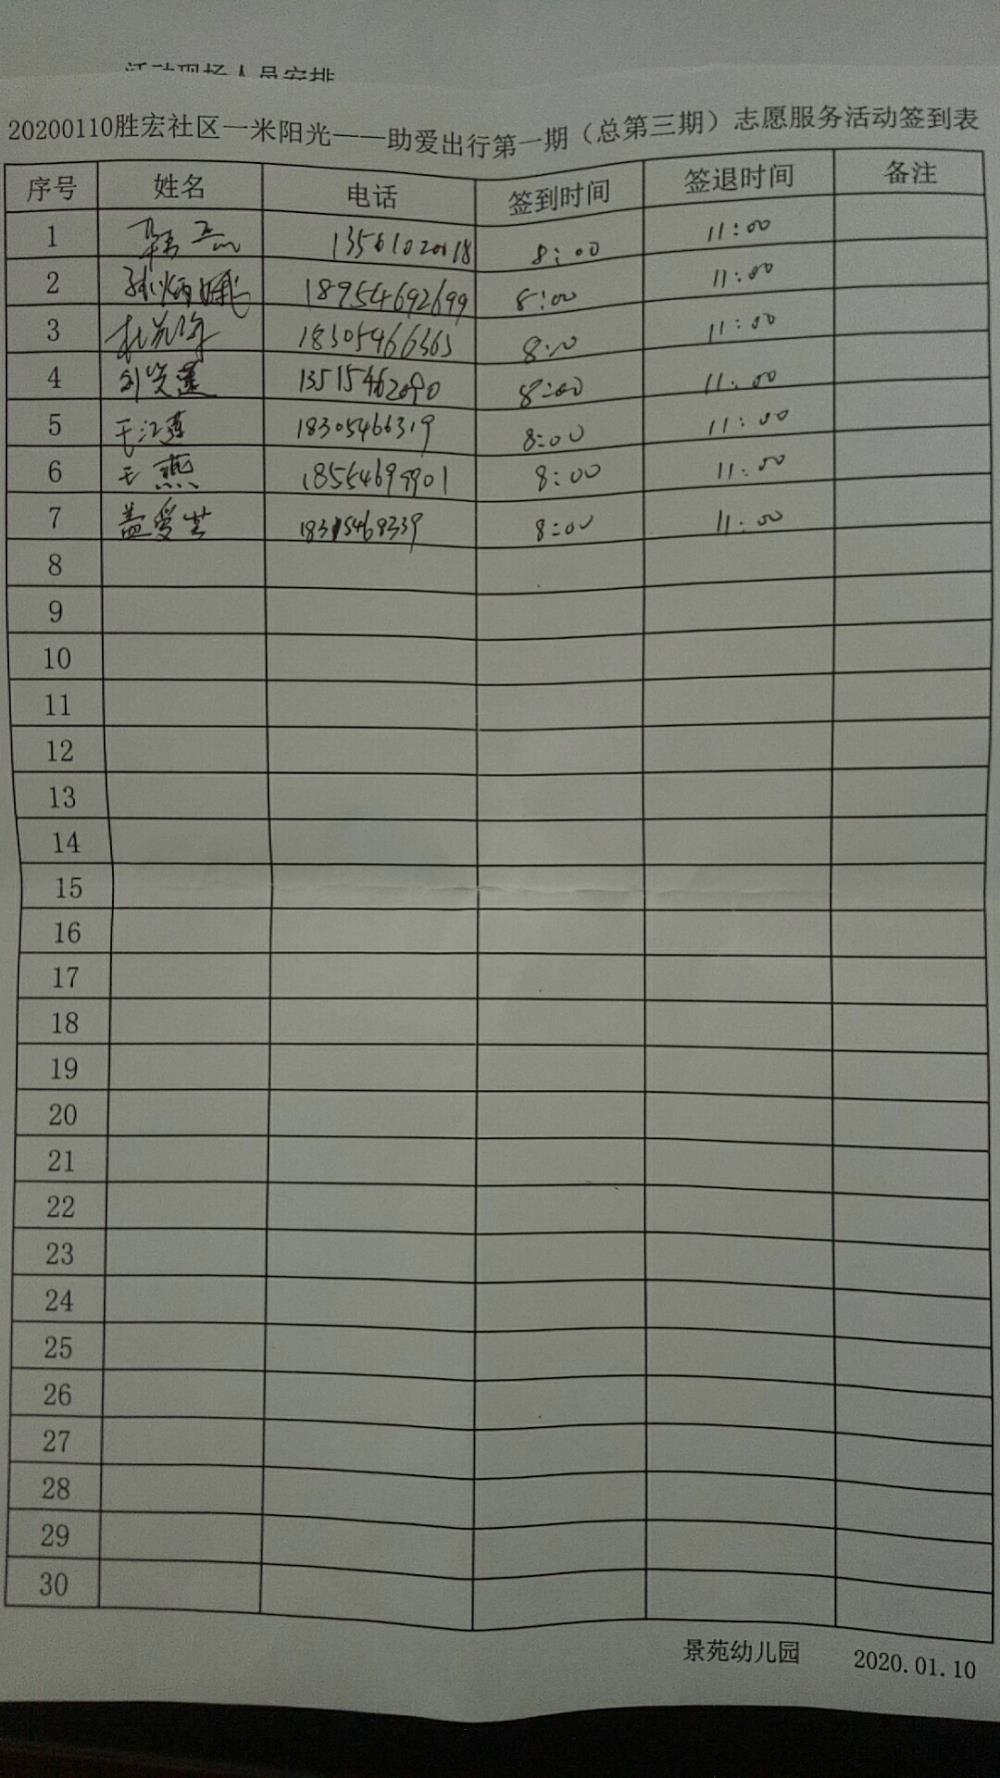 活动现场人员安排
20200110胜宏社区一米阳光——助爱出行第一期（总第三期）志愿服务活动签到表
序号 姓名 电话 签到时间 签退时间 备注
1 8:00 11:00
2 孙炳娥 18954692699 8:00 11:00
3 18305466363 8:00 11:00
4 13515462090 8:00 11:00
5 王江莲 18305466319 8:00 11:00
6 王燕 18554699901 8:00 11:00
7 盖爱芝 8:00 11:00
8
9
10
11
12
13
14
15
16
17
18
19
20
21
22
23
24
25
26
27
28
29
30
景苑幼儿园 2020.01.10